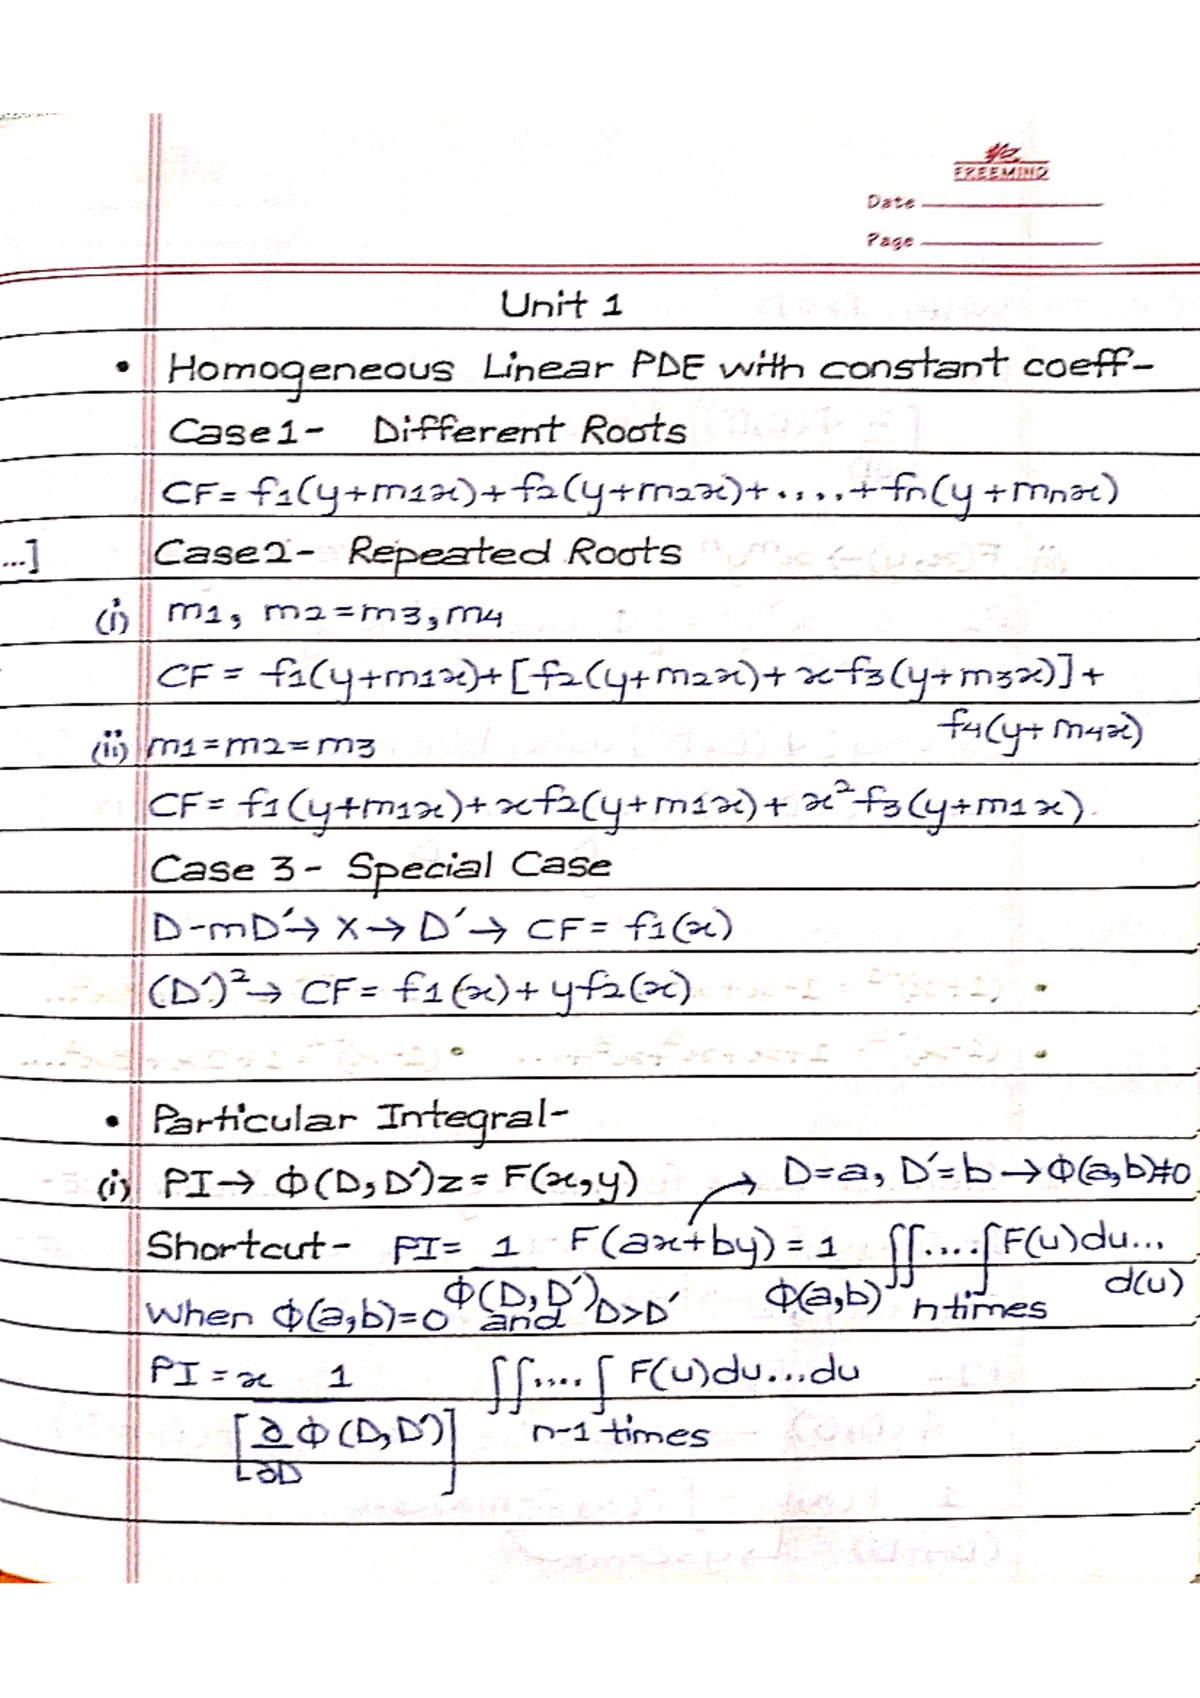 FREEMIND
Date
Page
Unit 1
• Homogeneous Linear PDE with constant coeff-
Case 1- Different Roots
CF = f1(y+m1x)+f2(y+m2x)+.....+fn(y+mnx)
...] Case 2- Repeated Roots
(i) m1, m2=m3, m4
CF = f1(y+m1x)+[f2(y+m2x)+xf3(y+m3x)]+
f4(y+m4x)
(ii) m1=m2=m3
CF = f1(y+m1x)+xf2(y+m1x)+x²f3(y+m1x).
Case 3- Special Case
D-mD'→ X → D' → CF = f1(x)
(D')²→ CF = f1(x)+yf2(x)
• Particular Integral-
(i) PI→ Φ(D,D')z = F(x,y) → D=a, D'=b → Φ(a,b)≠0
Shortcut- PI = 1 F(ax+by) = 1 ∫∫....∫F(u)du...
Φ(D,D') Φ(a,b) n times d(u)
When Φ(a,b)=0 and D>D'
PI = x 1 ∫∫....∫ F(u)du...du
[∂ Φ(D,D')] n-1 times
∂D